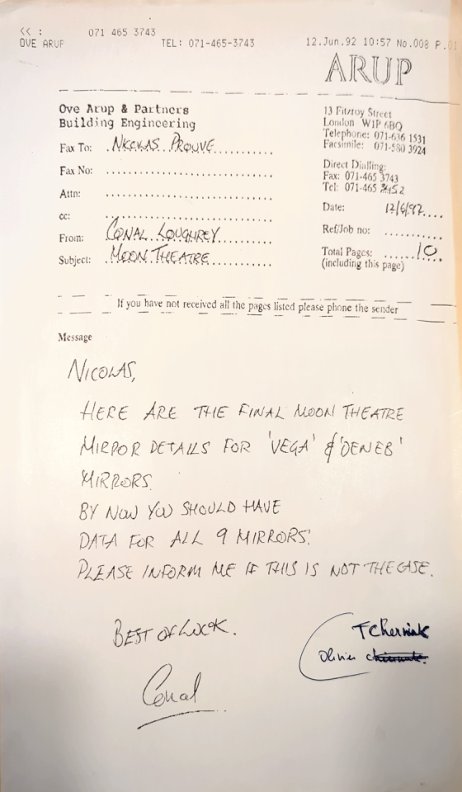 << :    071 465 3743
OVE ARUP    TEL: 071-465-3743    12.Jun.92 10:57 No.008 P.01
ARUP
Ove Arup & Partners
Building Engineering
13 Fitzroy Street
London W1P 6BQ
Telephone: 071-636 1531
Facsimile: 071-580 3924
Fax To: NICOLAS PROUVE
Fax No:
Attn:
cc:
From: CONAL LOUGHREY
Subject: MOON THEATRE
Direct Dialling:
Fax: 071-465 3743
Tel: 071-465 3452
Date: 12/6/92
Ref/Job no:
Total Pages: 10
(including this page)
If you have not received all the pages listed please phone the sender
Message
NICOLAS,
HERE ARE THE FINAL MOON THEATRE
MIRROR DETAILS FOR 'VEGA' & 'DENEB'
MIRRORS.
BY NOW YOU SHOULD HAVE
DATA FOR ALL 9 MIRRORS.
PLEASE INFORM ME IF THIS IS NOT THE CASE.
BEST OF LUCK.
Conal
Olivier